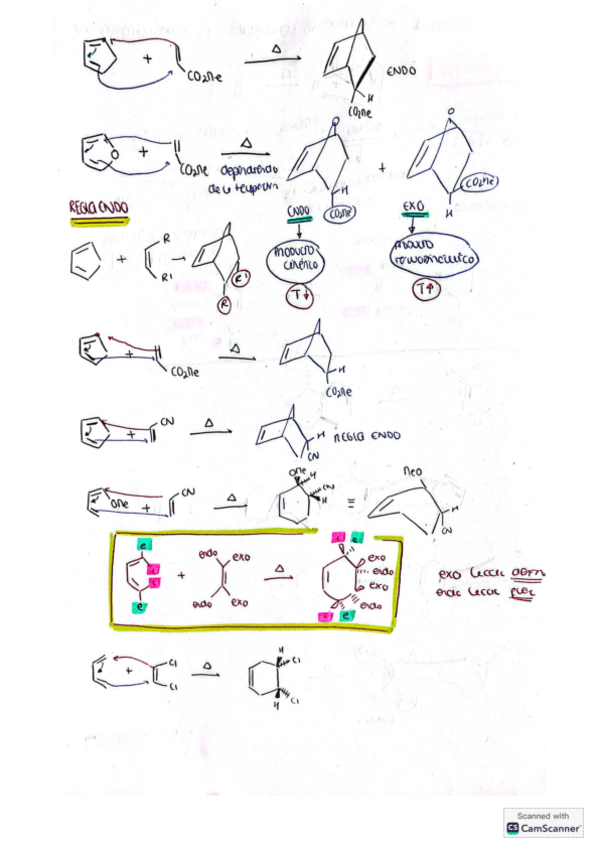 + CO₂Me Δ ENDO
H
CO₂Me
O + CO₂Me Δ O + O
dependiendo
de la temperatura
H CO₂Me
CO₂Me H
REGLA ENDO ENDO EXO
+ R R' → R' R
PRODUCTO
CINÉTICO
PRODUCTO
TERMODINÁMICO
T↓ T↑
+ CO₂Me Δ H
CO₂Me
+ CN Δ H REGLA ENDO
CN
OMe + CN Δ OMe H CN H ≡ MeO H CN
e i i e + endo exo endo exo Δ i e exo endo exo endo i e
exo
endo
+ Cl Cl Δ H Cl Cl H
Scanned with
CS CamScanner